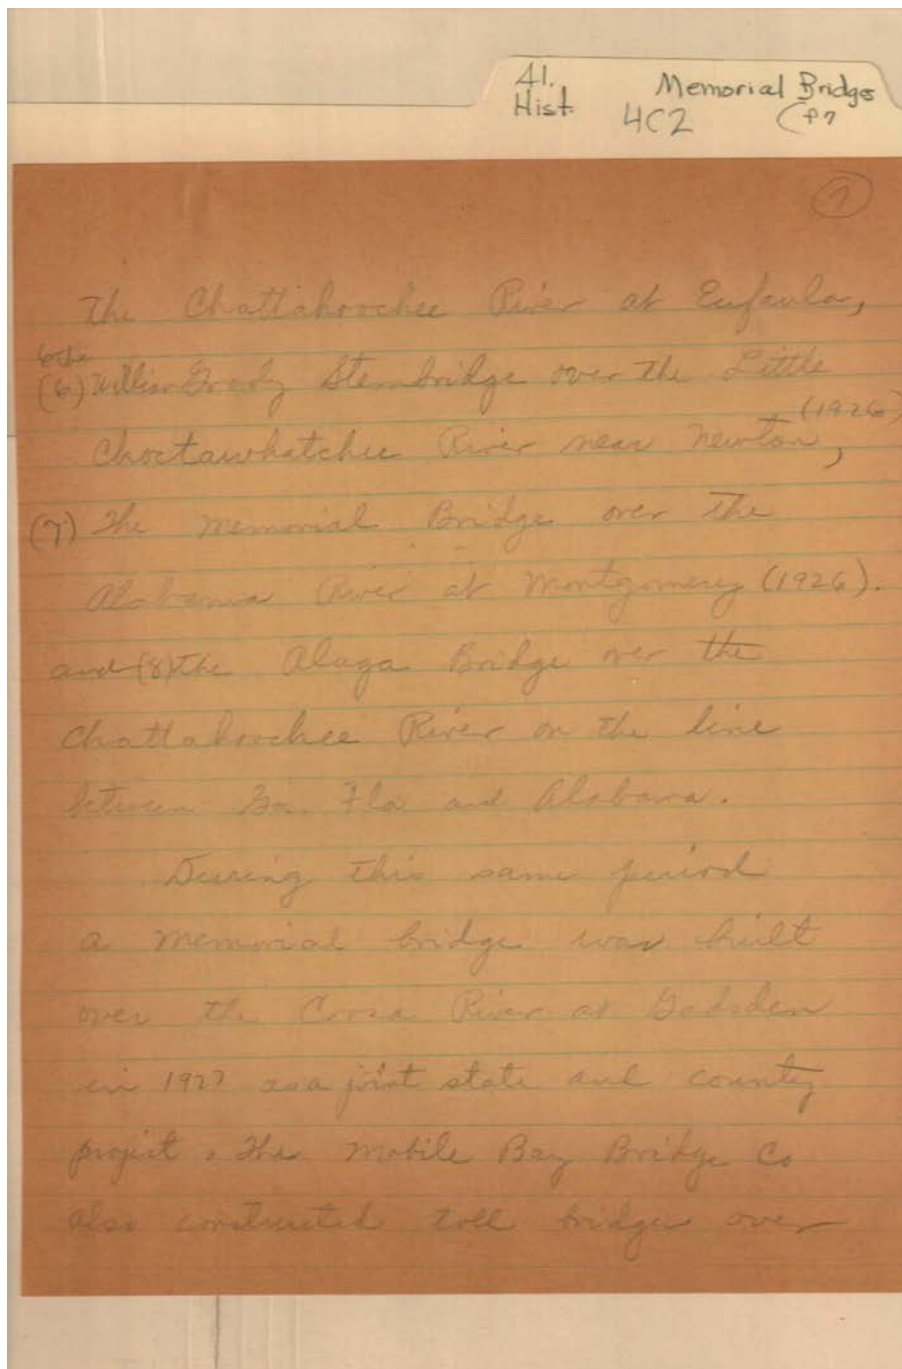 41. Memorial Bridges
Hist. 4C2 (P7
7
The Chattahoochee River at Eufaula,
(6) William Grady Stembridge over the Little
(1926)
Choctawhatchee River near Newton,
(7) The Memorial Bridge over the
Alabama River at Montgomery (1926).
and (8) the Alaga Bridge over the
Chattahoochee River on the line
between Ga. Fla and Alabama.
During this same period
a memorial bridge was built
over the Coosa River at Gadsden
in 1927 as a joint state and county
project. The Mobile Bay Bridge Co
also constructed toll bridges over